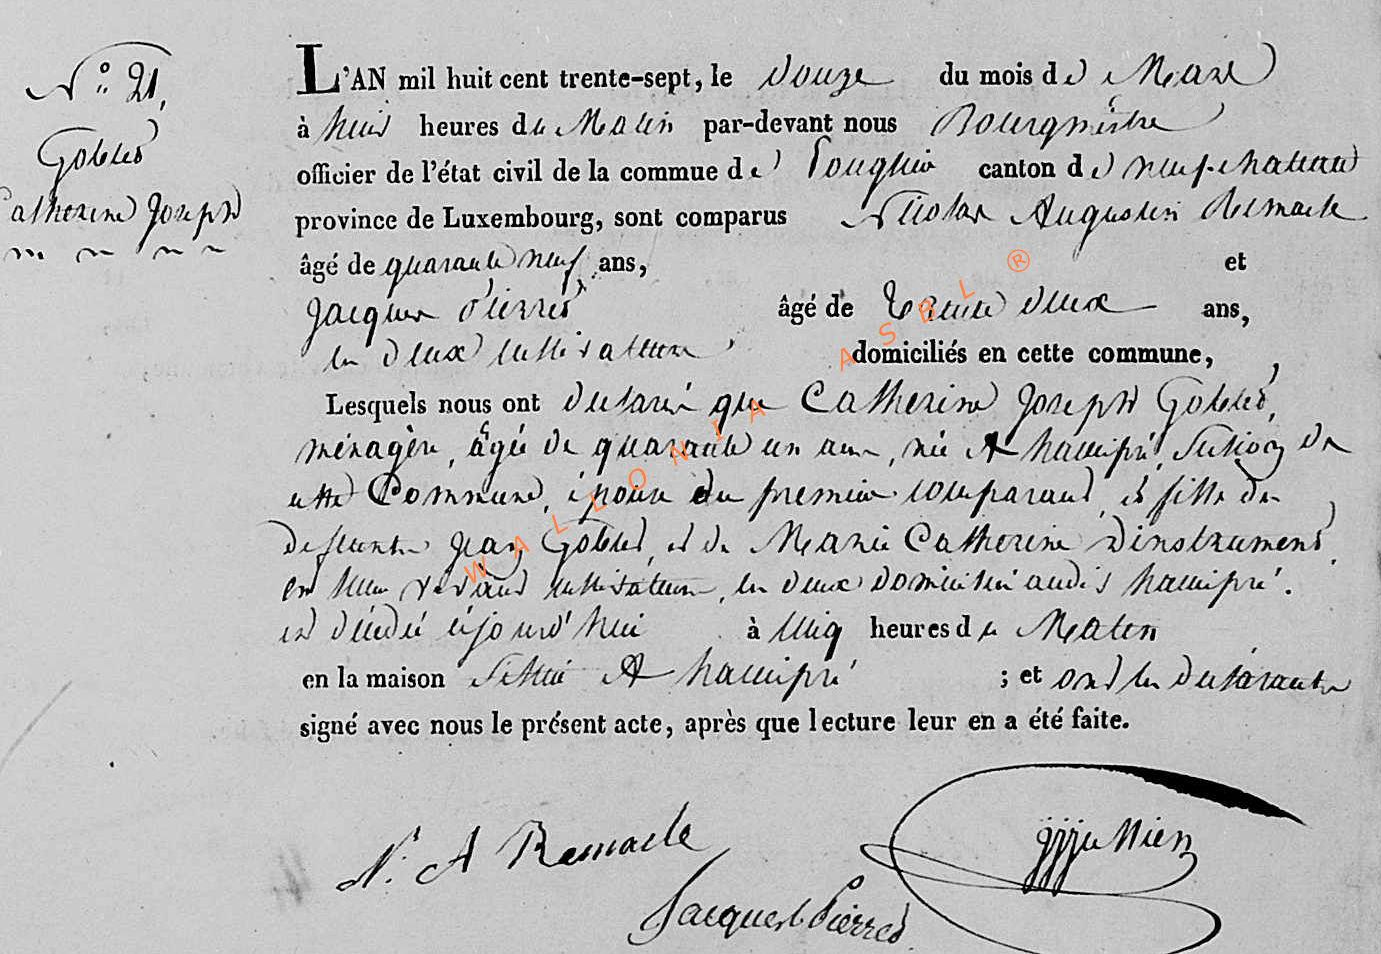 N.° 21,
Gobled
Catherine Joseph
L'AN mil huit cent trente-sept, le douze du mois de Mars
à huit heures du Matin par-devant nous Bourgmestre
officier de l'état civil de la commune de canton de neufchateau
province de Luxembourg, sont comparus Nicolas Augustin Remacle
âgé de quarante neuf ans, et
Jacques Pierret âgé de trente deux ans,
les deux cultivateurs domiciliés en cette commune,
Lesquels nous ont declaré que Catherine Joseph Gobled,
ménagère, âgée de quarante un ans, née A hamipré, Section de
cette Commune, épouse du premier comparant, et fille de
defunts Jean Gobled, et de Marie Catherine Dinstrument
en leur vivant cultivateurs, les deux domiciliés audit hamipré.
est décédée cejourd'hui à cinq heures du Matin
en la maison Située A hamipré ; et ont les declarants
signé avec nous le présent acte, après que lecture leur en a été faite.
N. A Remacle
Jacques Pierred
WALLONIA ASBL ®